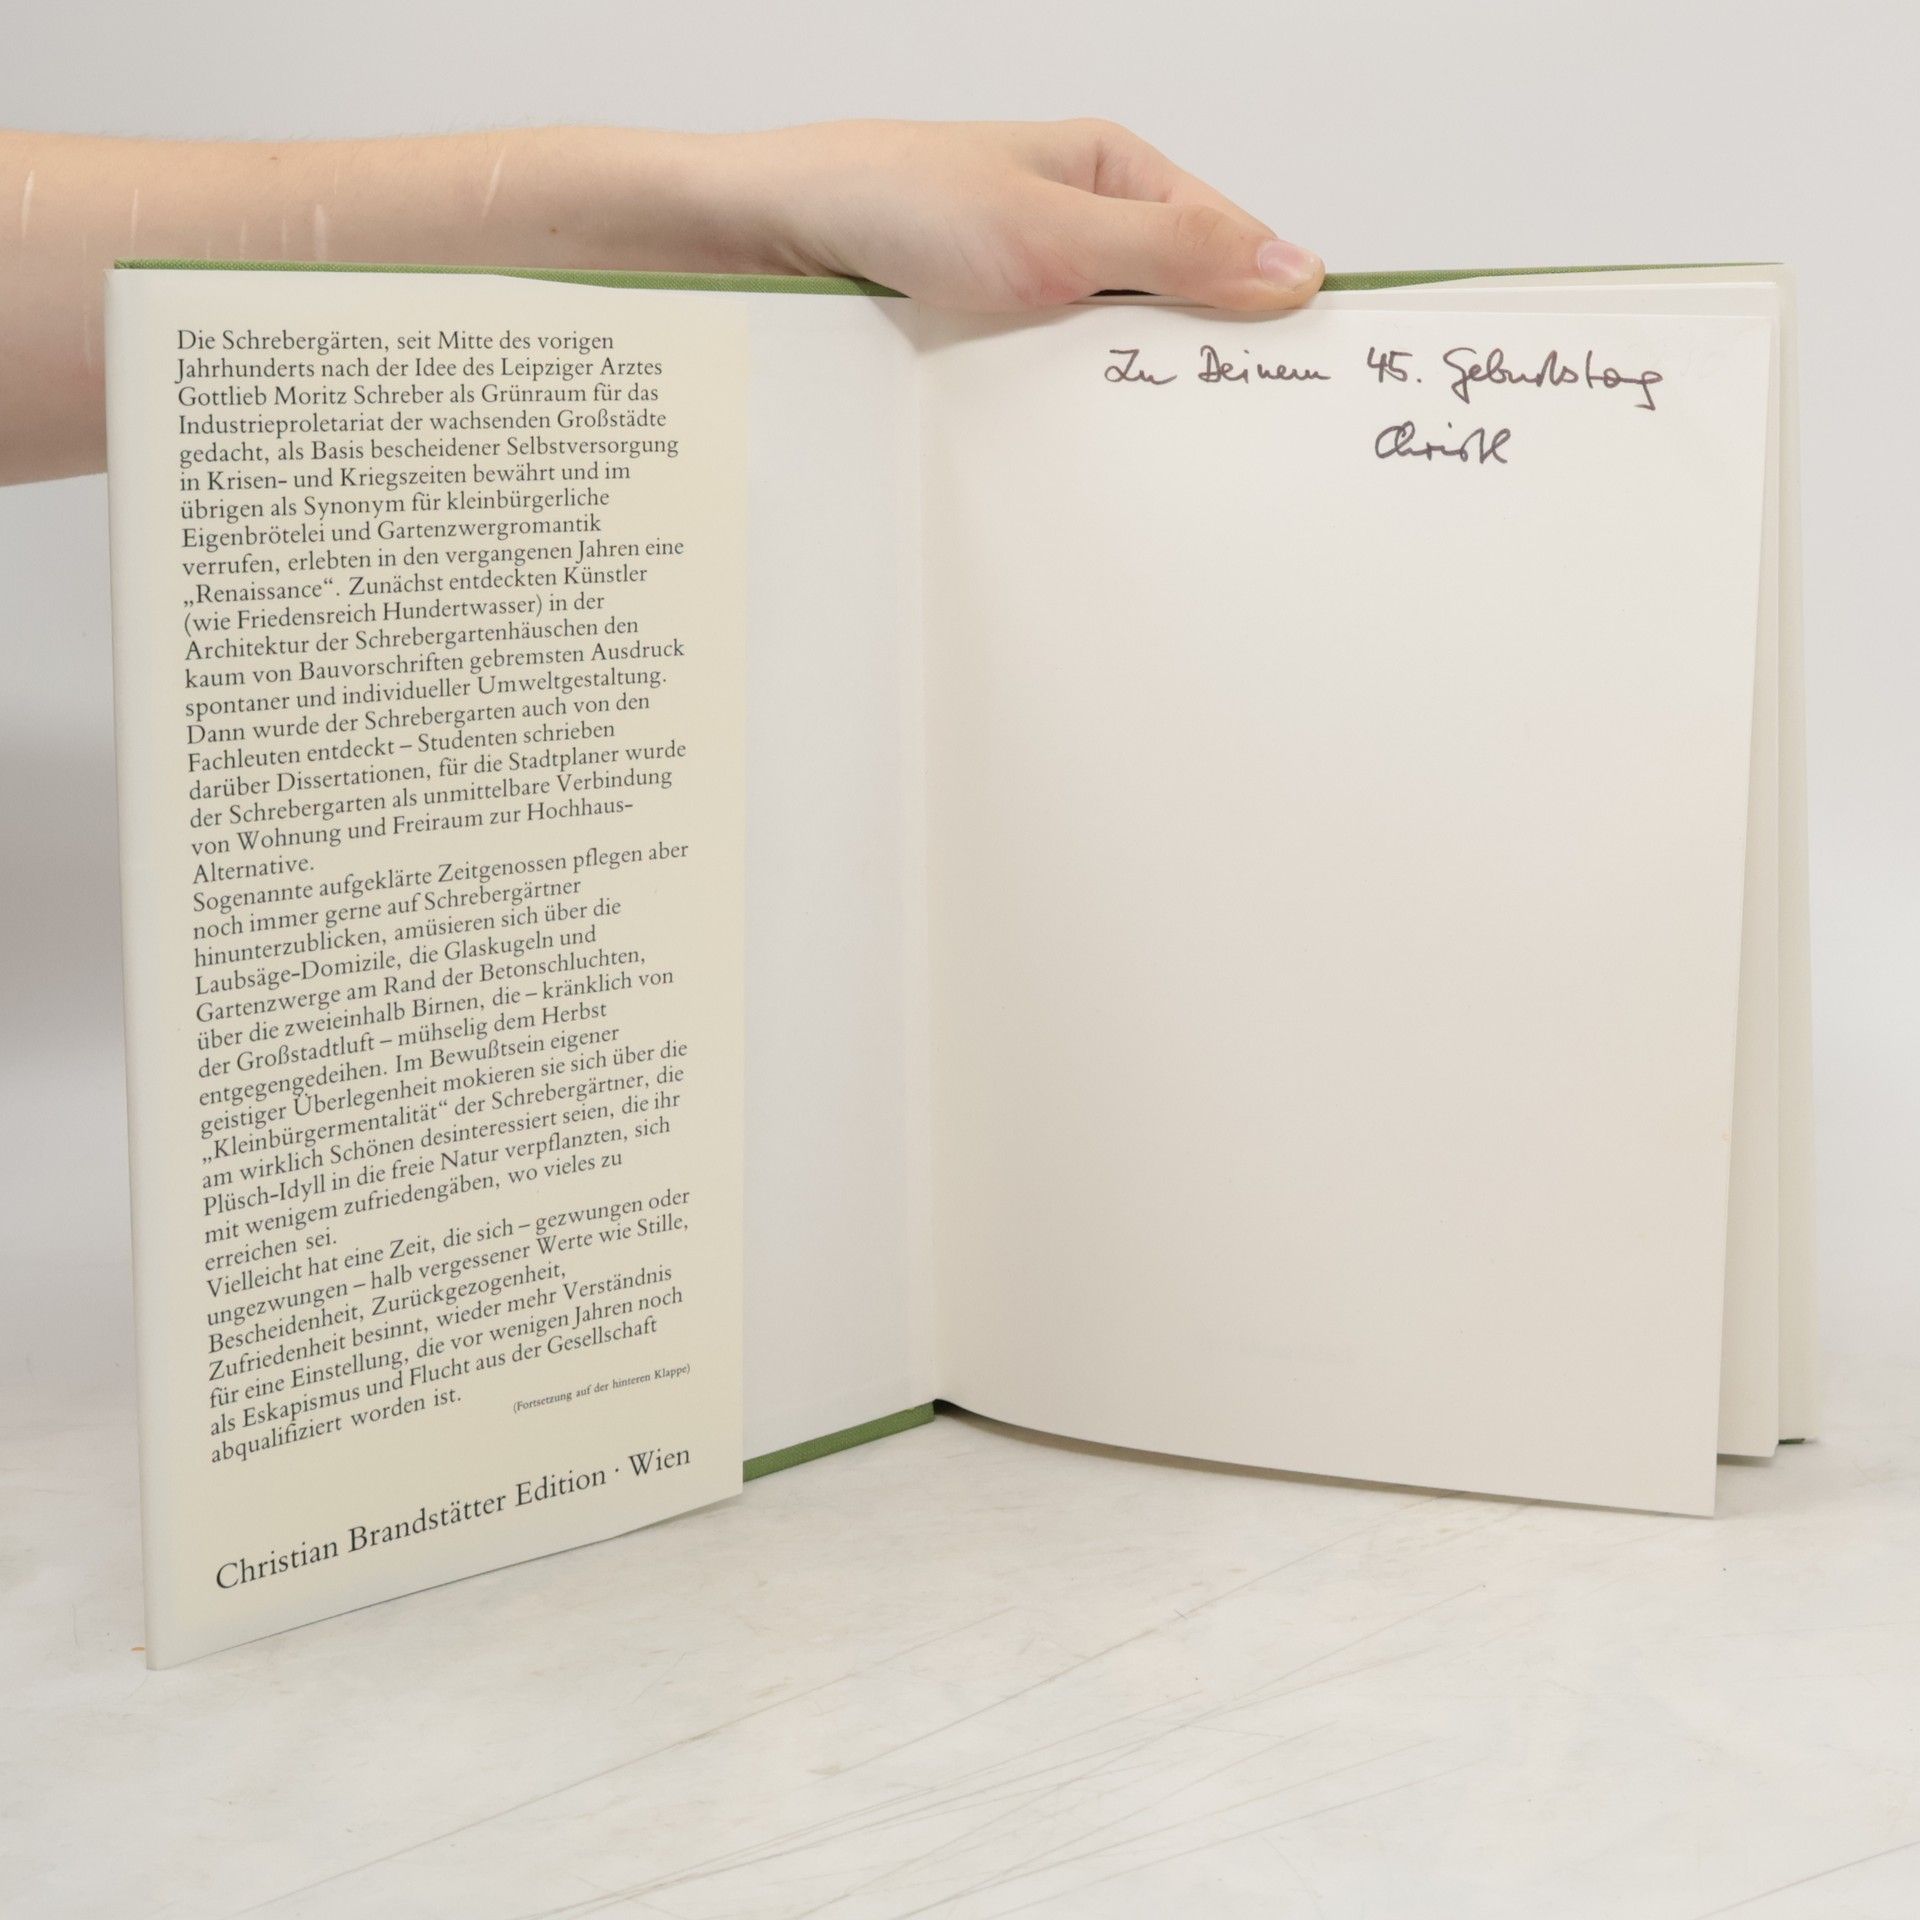 Die Schrebergärten, seit Mitte des vorigen
Jahrhunderts nach der Idee des Leipziger Arztes
Gottlieb Moritz Schreber als Grünraum für das
Industrieproletariat der wachsenden Großstädte
gedacht, als Basis bescheidener Selbstversorgung
in Krisen- und Kriegszeiten bewährt und im
übrigen als Synonym für kleinbürgerliche
Eigenbrötelei und Gartenzwergromantik
verrufen, erlebten in den vergangenen Jahren eine
„Renaissance“. Zunächst entdeckten Künstler
(wie Friedensreich Hundertwasser) in der
Architektur der Schrebergartenhäuschen den
kaum von Bauvorschriften gebremsten Ausdruck
spontaner und individueller Umweltgestaltung.
Dann wurde der Schrebergarten auch von den
Fachleuten entdeckt – Studenten schrieben
darüber Dissertationen, für die Stadtplaner wurde
der Schrebergarten als unmittelbare Verbindung
von Wohnung und Freiraum zur Hochhaus-
Alternative.
Sogenannte aufgeklärte Zeitgenossen pflegen aber
noch immer gerne auf Schrebergärtner
hinunterzublicken, amüsieren sich über die
Laubsäge-Domizile, die Glaskugeln und
Gartenzwerge am Rand der Betonschluchten,
über die zweieinhalb Birnen, die – kränklich von
der Großstadtluft – mühselig dem Herbst
entgegengedeihen. Im Bewußtsein eigener
geistiger Überlegenheit mokieren sie sich über die
„Kleinbürgermentalität“ der Schrebergärtner, die
am wirklich Schönen desinteressiert seien, die ihr
Plüsch-Idyll in die freie Natur verpflanzten, sich
mit wenigem zufriedengäben, wo vieles zu
erreichen sei.
Vielleicht hat eine Zeit, die sich – gezwungen oder
ungezwungen – halb vergessener Werte wie Stille,
Bescheidenheit, Zurückgezogenheit,
Zufriedenheit besinnt, wieder mehr Verständnis
für eine Einstellung, die vor wenigen Jahren noch
als Eskapismus und Flucht aus der Gesellschaft
abqualifiziert worden ist.
(Fortsetzung auf der hinteren Klappe)
Christian Brandstätter Edition · Wien
Zu Deinem 45. Geburtstag
Christl